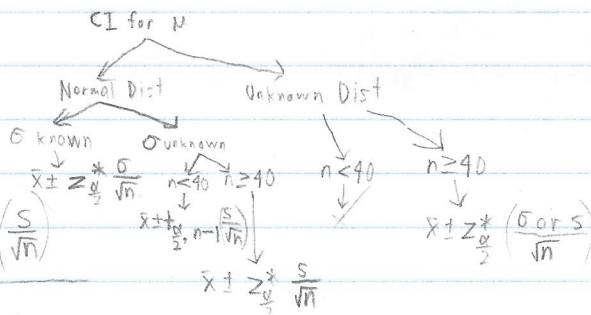 CI for μ
Normal Dist Unknown Dist
σ known σ unknown
x̄ ± z*α/2 σ/√n n<40 n≥40 n<40 n≥40
(s/√n) x̄ ± tα/2, n-1 (s/√n) x̄ ± z*α/2 (σ or s/√n)
x̄ ± z*α/2 s/√n